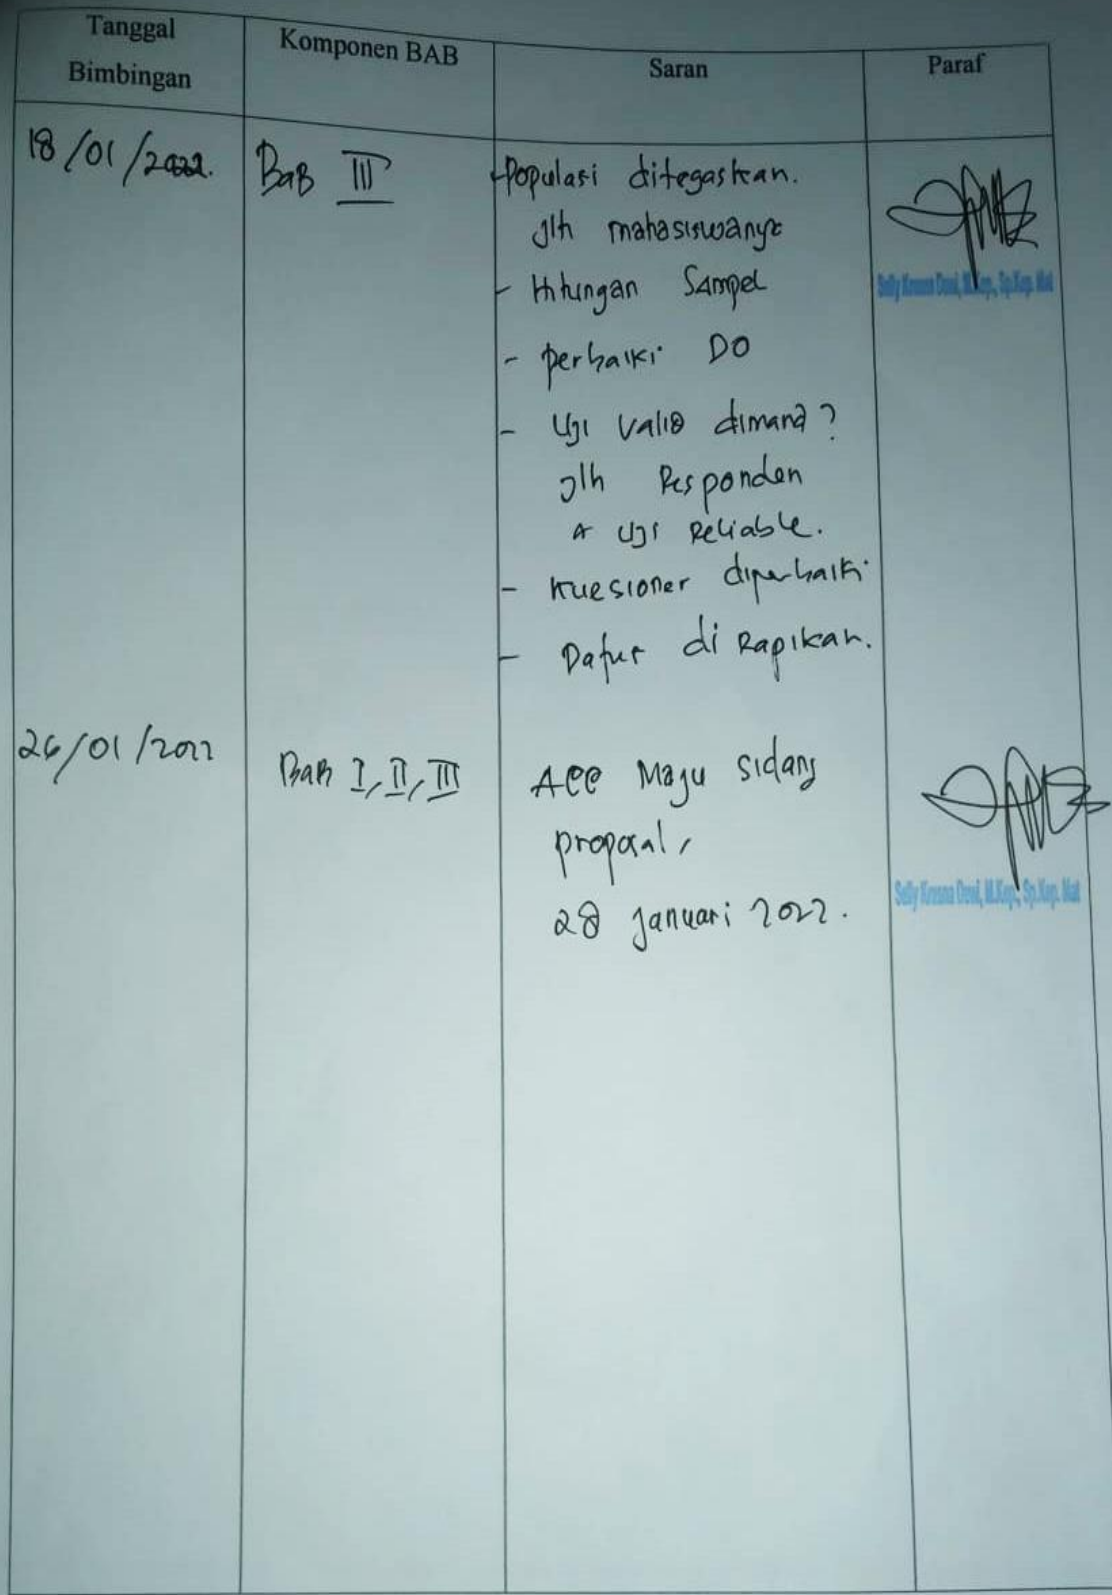 Tanggal
Bimbingan
Komponen BAB
Saran
Paraf
18/01/2022.
BaB III
- Populasi ditegaskan.
Jlh mahasiswanya
- Hitungan Sampel
- perbaiki DO
- Uji Valid dimana?
Jlh Responden
& Uji Reliable.
- Kuesioner diperbaiki
- Dafus di Rapikan.
Selly Kresna Dewi, M.Kep., Sp.Kep. Mat
26/01/2022
BaB I, II, III
Acc Maju sidang
proposal,
28 Januari 2022.
Selly Kresna Dewi, M.Kep., Sp.Kep. Mat